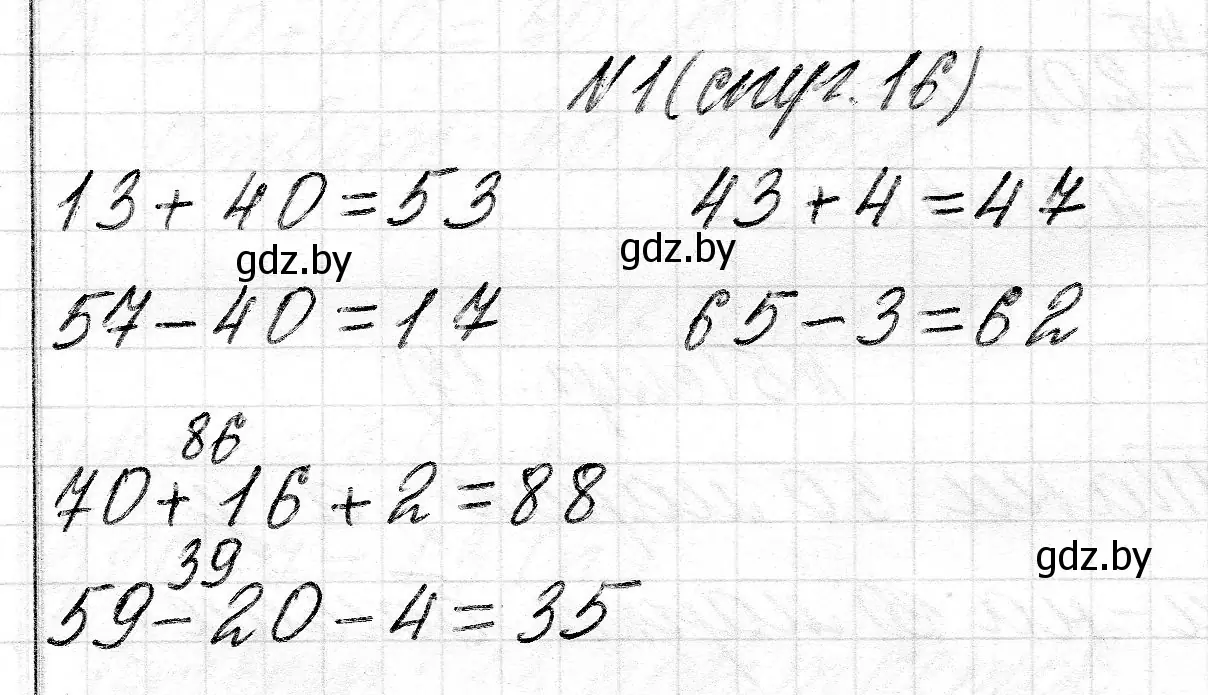 №1 (стр. 16)
13 + 40 = 53   43 + 4 = 47
gdz.by   gdz.by
57 - 40 = 17   65 - 3 = 62
86
70 + 16 + 2 = 88
39   gdz.by
59 - 20 - 4 = 35